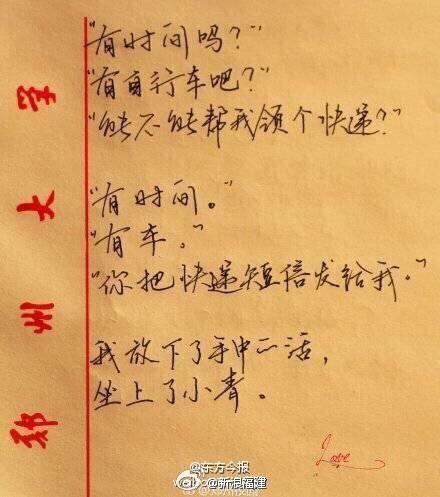 "有时间吗？"
"有自行车吧？"
"能不能帮我领个快递？"
"有时间。"
"有车。"
"你把快递短信发给我。"
我放下了手中的活，
坐上了小青。
郑州大学
Love
@东方今报
@新浪福建